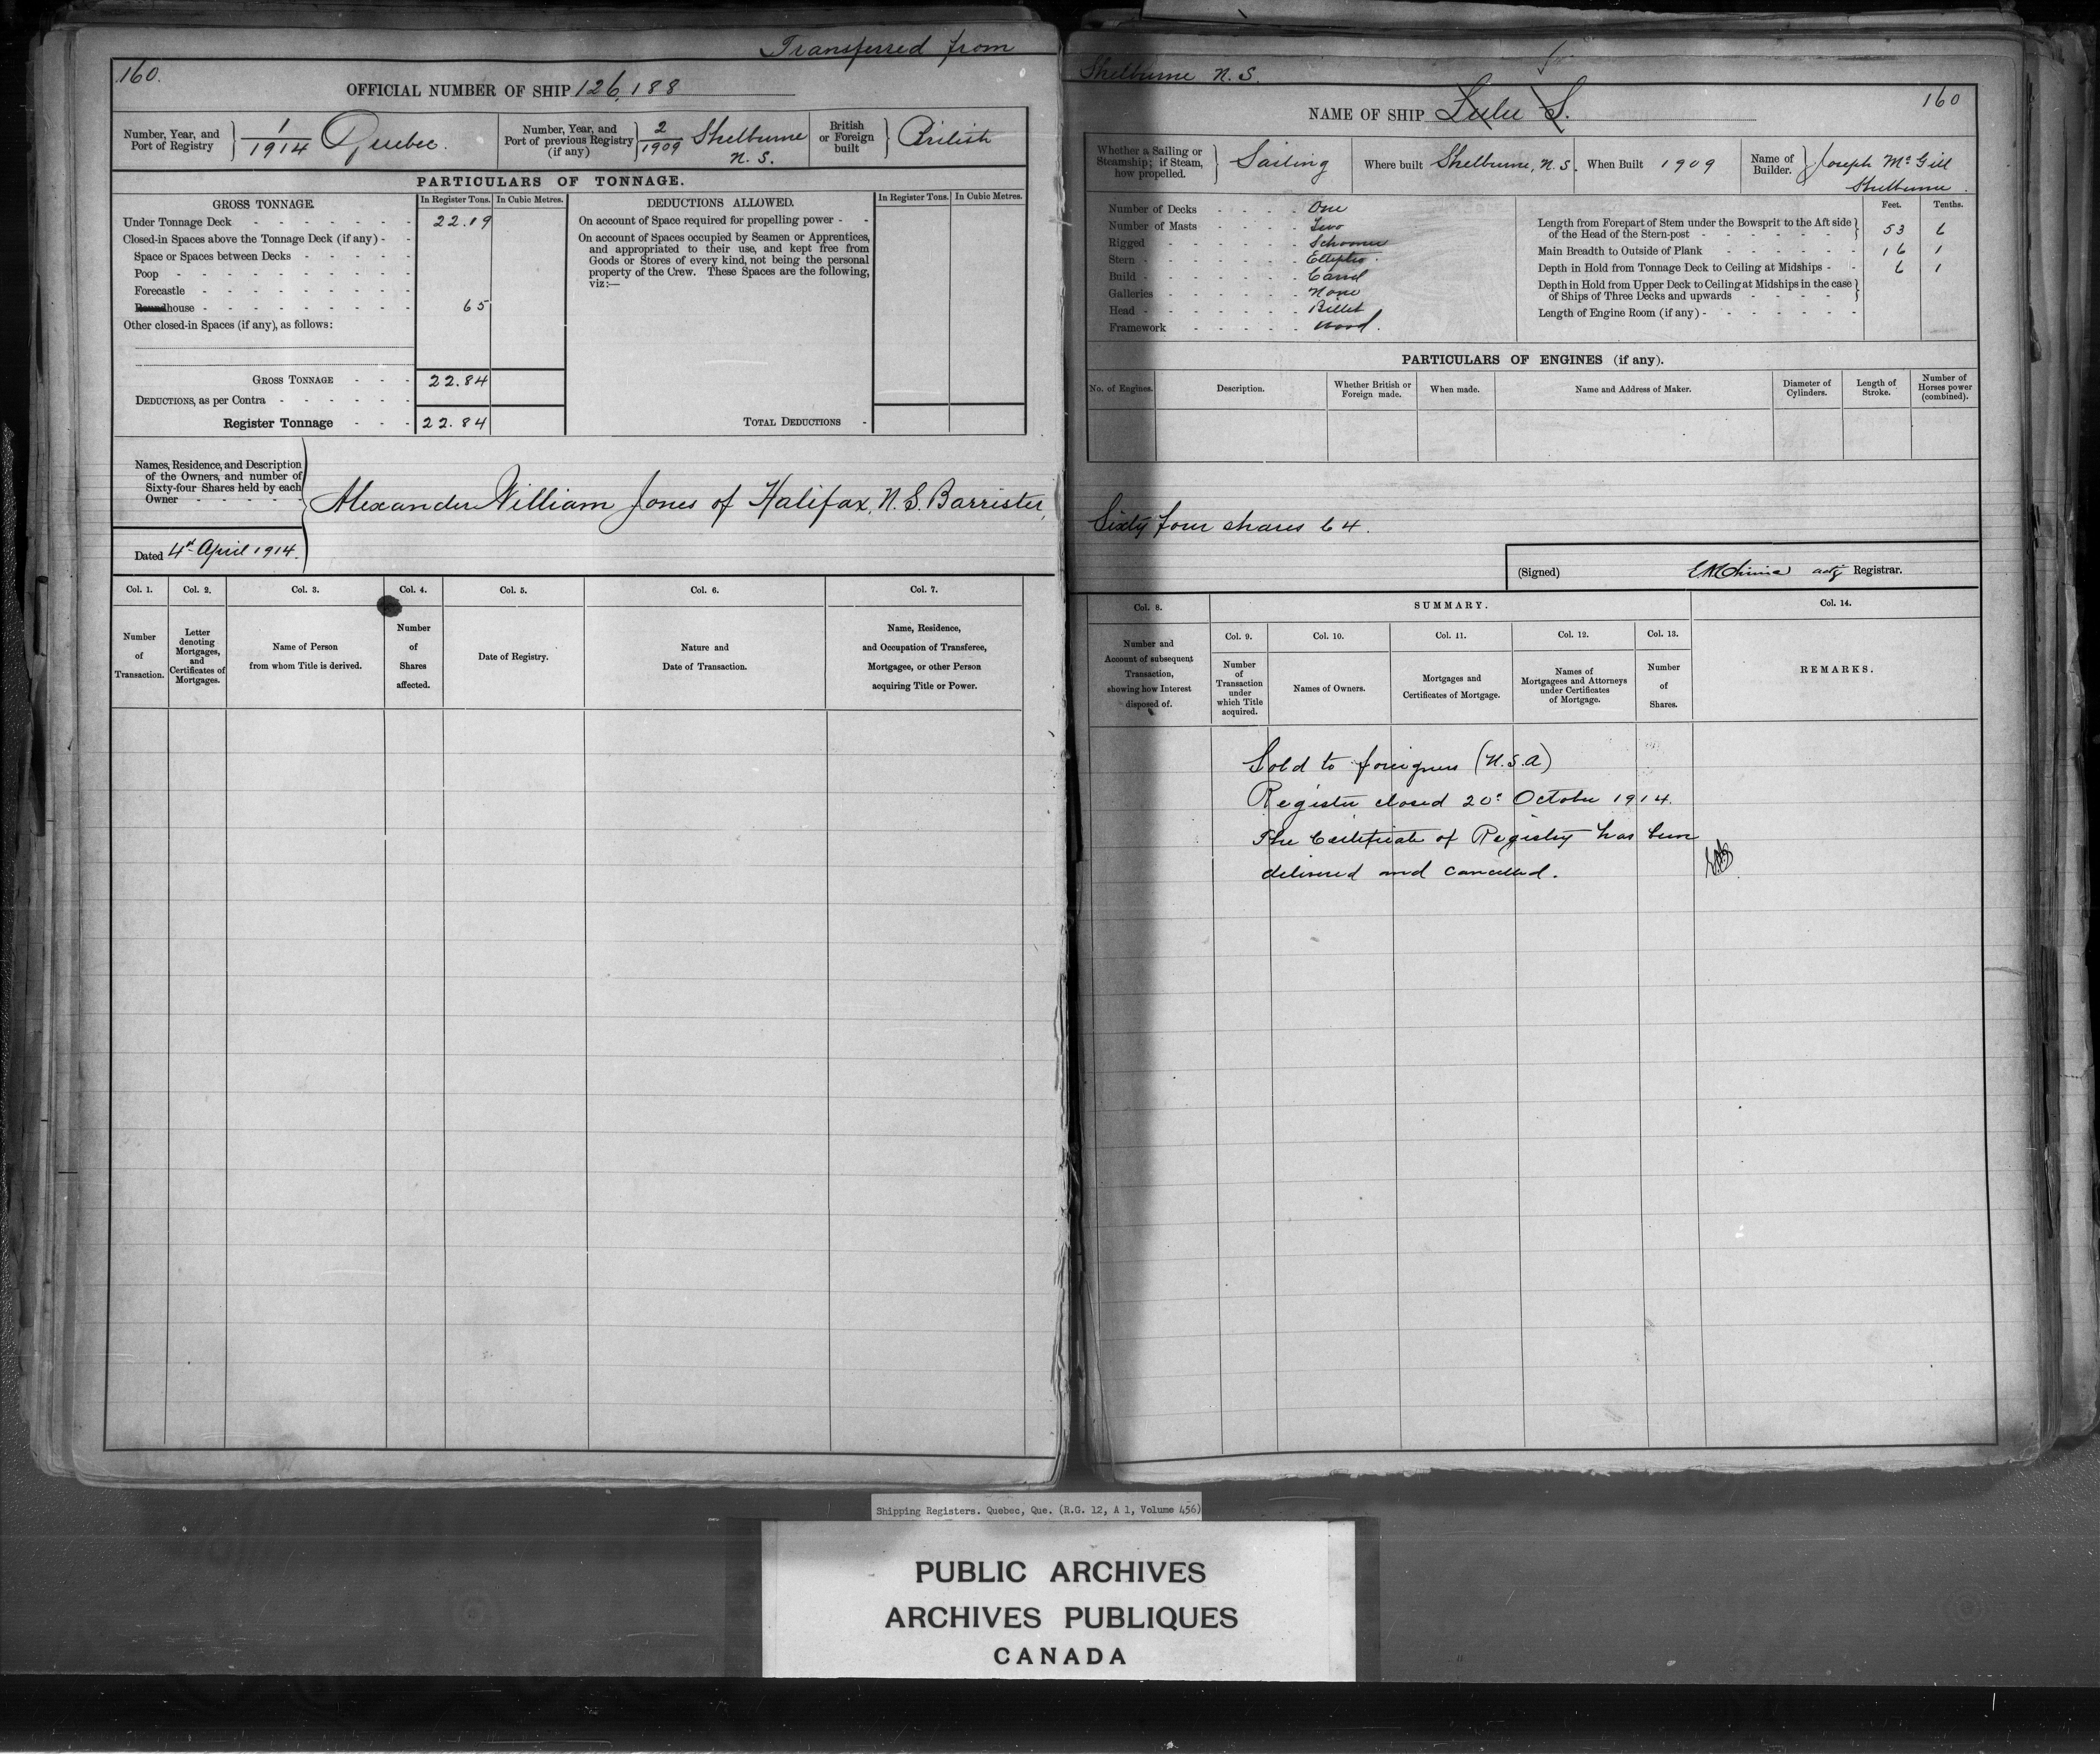 Transferred from
160.
OFFICIAL NUMBER OF SHIP 126,188
Number, Year, and Port of Registry } 1/1914 Quebec.
Number, Year, and Port of previous Registry (if any) } 2/1909 Shelburne N. S.
British or Foreign built } British
PARTICULARS OF TONNAGE.
GROSS TONNAGE. In Register Tons. In Cubic Metres.
Under Tonnage Deck - - - - - - - 22.19
Closed-in Spaces above the Tonnage Deck (if any) - -
Space or Spaces between Decks - - - - -
Poop - - - - - - - - - -
Forecastle - - - - - - - - -
Roundhouse - - - - - - - - - 65
Other closed-in Spaces (if any), as follows:
GROSS TONNAGE - - - 22.84
DEDUCTIONS, as per Contra - - - - - -
Register Tonnage - - - 22.84
DEDUCTIONS ALLOWED. In Register Tons. In Cubic Metres.
On account of Space required for propelling power - -
On account of Spaces occupied by Seamen or Apprentices,
and appropriated to their use, and kept free from
Goods or Stores of every kind, not being the personal
property of the Crew. These Spaces are the following,
viz:—
TOTAL DEDUCTIONS -
Names, Residence, and Description
of the Owners, and number of
Sixty-four Shares held by each
Owner - - - - -
Alexander William Jones of Halifax, N. S. Barrister,
Dated 4th April 1914.
Col. 1. Col. 2. Col. 3. Col. 4. Col. 5. Col. 6. Col. 7.
Number of Transaction.
Letter denoting Mortgages, and Certificates of Mortgages.
Name of Person from whom Title is derived.
Number of Shares affected.
Date of Registry.
Nature and Date of Transaction.
Name, Residence, and Occupation of Transferee, Mortgagee, or other Person acquiring Title or Power.
Shelburne N. S.
160
NAME OF SHIP Lulu S.
Whether a Sailing or Steamship; if Steam, how propelled. } Sailing
Where built Shelburne, N. S.
When Built 1909
Name of Builder. } Joseph McGill Shelburne.
Number of Decks - - - - One
Number of Masts - - - - Two
Rigged - - - - - - Schooner
Stern - - - - - - - Elliptic.
Build - - - - - - - Carvel
Galleries - - - - - - None
Head - - - - - - - Billet
Framework - - - - - Wood.
Feet. Tenths.
Length from Forepart of Stem under the Bowsprit to the Aft side
of the Head of the Stern-post - - - - - - 53 6
Main Breadth to Outside of Plank - - - - - - 16 1
Depth in Hold from Tonnage Deck to Ceiling at Midships - - 6 1
Depth in Hold from Upper Deck to Ceiling at Midships in the case
of Ships of Three Decks and upwards - - - -
Length of Engine Room (if any) - - - - - - -
PARTICULARS OF ENGINES (if any).
No. of Engines. Description. Whether British or Foreign made. When made. Name and Address of Maker. Diameter of Cylinders. Length of Stroke. Number of Horses power (combined).
Sixty four shares 64.
(Signed) acty Registrar.
Col. 8. SUMMARY. Col. 14.
Col. 9. Col. 10. Col. 11. Col. 12. Col. 13.
Number and Account of subsequent Transaction, showing how Interest disposed of.
Number of Transaction under which Title acquired.
Names of Owners.
Mortgages and Certificates of Mortgage.
Names of Mortgagees and Attorneys under Certificates of Mortgage.
Number of Shares.
REMARKS.
Sold to foreigners (U.S.A)
Register closed 20th October 1914.
The Certificate of Registry has been
delivered and cancelled.
Shipping Registers. Quebec, Que. (R.G. 12, A 1, Volume 456)
PUBLIC ARCHIVES
ARCHIVES PUBLIQUES
CANADA